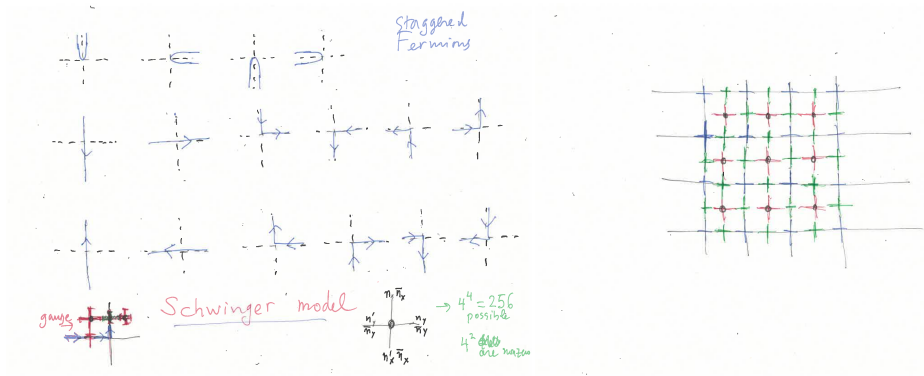 Staggered
Fermions
gauge
Schwinger model
n_x n̄_x
n'_y n_y
n̄'_y n̄_y
n'_x n̄_x
→ 4^4 = 256
possible
4^2
are nonzero